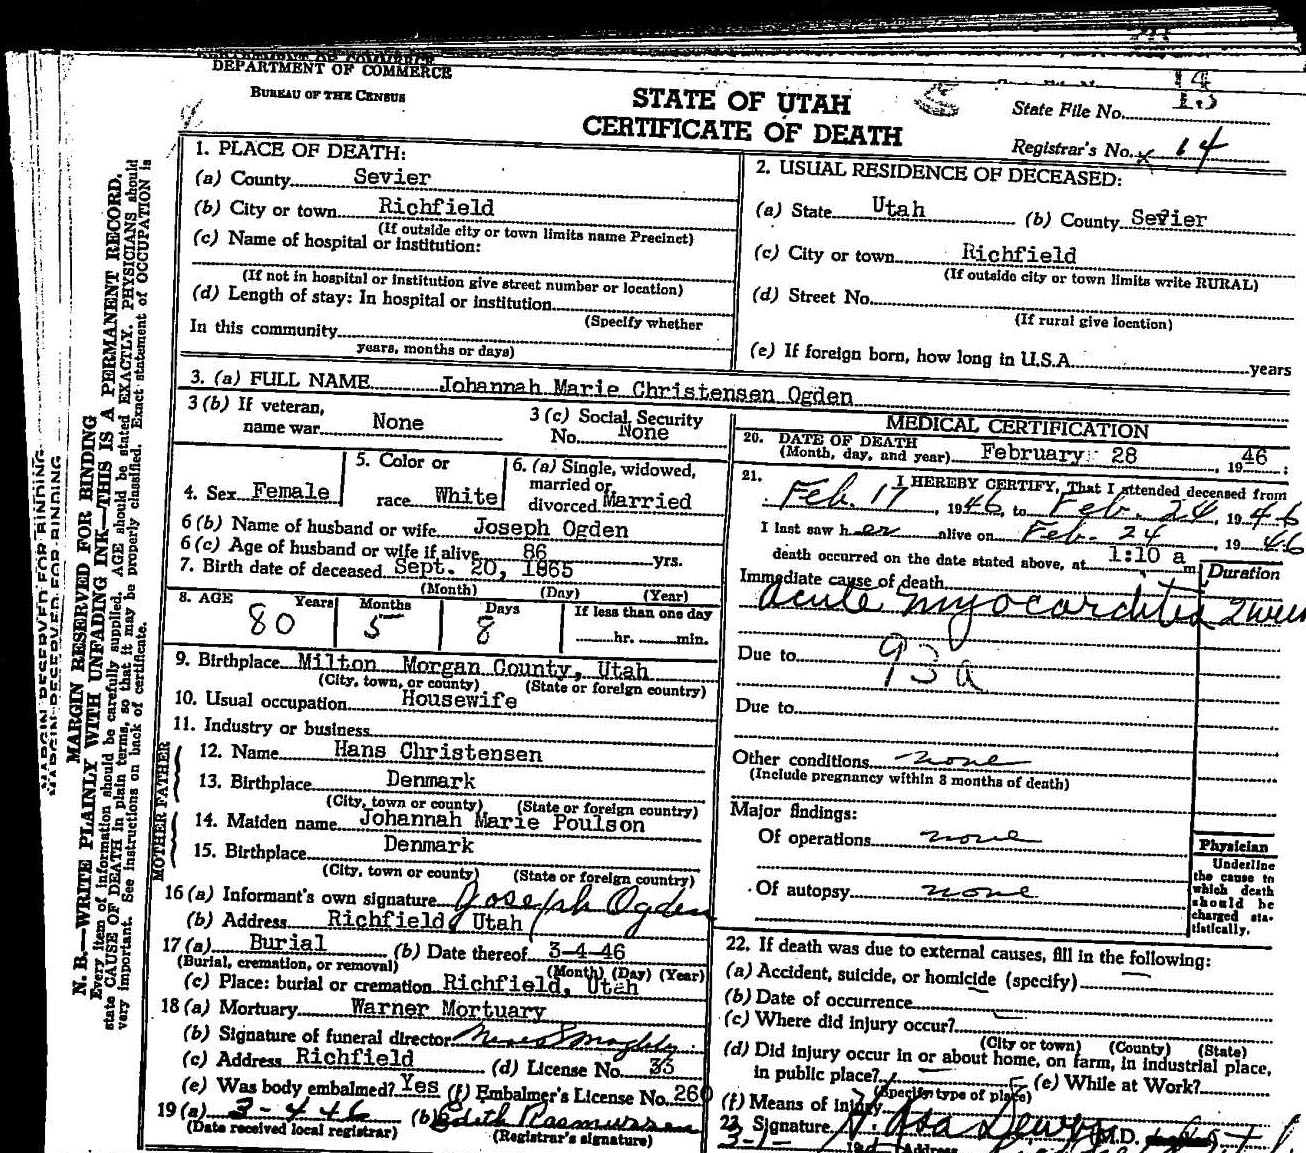 DEPARTMENT OF COMMERCE
BUREAU OF THE CENSUS
STATE OF UTAH
CERTIFICATE OF DEATH
State File No.
Registrar's No. 14
MARGIN RESERVED FOR BINDING
N. B.—WRITE PLAINLY WITH UNFADING INK—THIS IS A PERMANENT RECORD.
Every item of information should be carefully supplied. AGE should be stated EXACTLY. PHYSICIANS should
state CAUSE OF DEATH in plain terms, so that it may be properly classified. Exact statement of OCCUPATION is
very important. See instructions on back of certificate.
1. PLACE OF DEATH:
(a) County Sevier
(b) City or town Richfield
(If outside city or town limits name Precinct)
(c) Name of hospital or institution:
(If not in hospital or institution give street number or location)
(d) Length of stay: In hospital or institution
(Specify whether
In this community
years, months or days)
2. USUAL RESIDENCE OF DECEASED:
(a) State Utah (b) County Sevier
(c) City or town Richfield
(If outside city or town limits write RURAL)
(d) Street No.
(If rural give location)
(e) If foreign born, how long in U.S.A. years
3. (a) FULL NAME Johannah Marie Christensen Ogden
3 (b) If veteran,
name war None
3 (c) Social Security
No. None
4. Sex Female
5. Color or
race White
6. (a) Single, widowed,
married or
divorced Married
6 (b) Name of husband or wife Joseph Ogden
6 (c) Age of husband or wife if alive 86 yrs.
7. Birth date of deceased Sept. 20, 1865
(Month) (Day) (Year)
8. AGE Years Months Days If less than one day
80 5 8 hr. min.
9. Birthplace Milton Morgan County, Utah
(City, town, or county) (State or foreign country)
10. Usual occupation Housewife
11. Industry or business
FATHER
12. Name Hans Christensen
13. Birthplace Denmark
(City, town or county) (State or foreign country)
MOTHER
14. Maiden name Johannah Marie Poulson
15. Birthplace Denmark
(City, town or county) (State or foreign country)
16 (a) Informant's own signature Joseph Ogden
(b) Address Richfield, Utah
17 (a) Burial (b) Date thereof 3-4-46
(Burial, cremation, or removal) (Month) (Day) (Year)
(c) Place: burial or cremation Richfield, Utah
18 (a) Mortuary Warner Mortuary
(b) Signature of funeral director
(c) Address Richfield (d) License No. 33
(e) Was body embalmed? Yes (f) Embalmer's License No. 260
19 (a) 3-4-46 (b) Edith Rasmussen
(Date received local registrar) (Registrar's signature)
MEDICAL CERTIFICATION
20. DATE OF DEATH
(Month, day, and year) February 28, 1946
21. I HEREBY CERTIFY, That I attended deceased from
Feb. 17, 1946, to Feb. 24, 1946
I last saw her alive on Feb. 24, 1946
death occurred on the date stated above, at 1:10 a m
Duration
Immediate cause of death
Acute myocarditis 2
Due to 93a
Due to
Other conditions none
(Include pregnancy within 3 months of death)
Major findings:
Of operations none
Of autopsy none
Physician
Underline
the cause to
which death
should be
charged sta-
tistically.
22. If death was due to external causes, fill in the following:
(a) Accident, suicide, or homicide (specify) —
(b) Date of occurrence
(c) Where did injury occur?
(City or town) (County) (State)
(d) Did injury occur in or about home, on farm, in industrial place,
in public place? (e) While at Work?
(Specify type of place)
(f) Means of injury
23. Signature M.D.